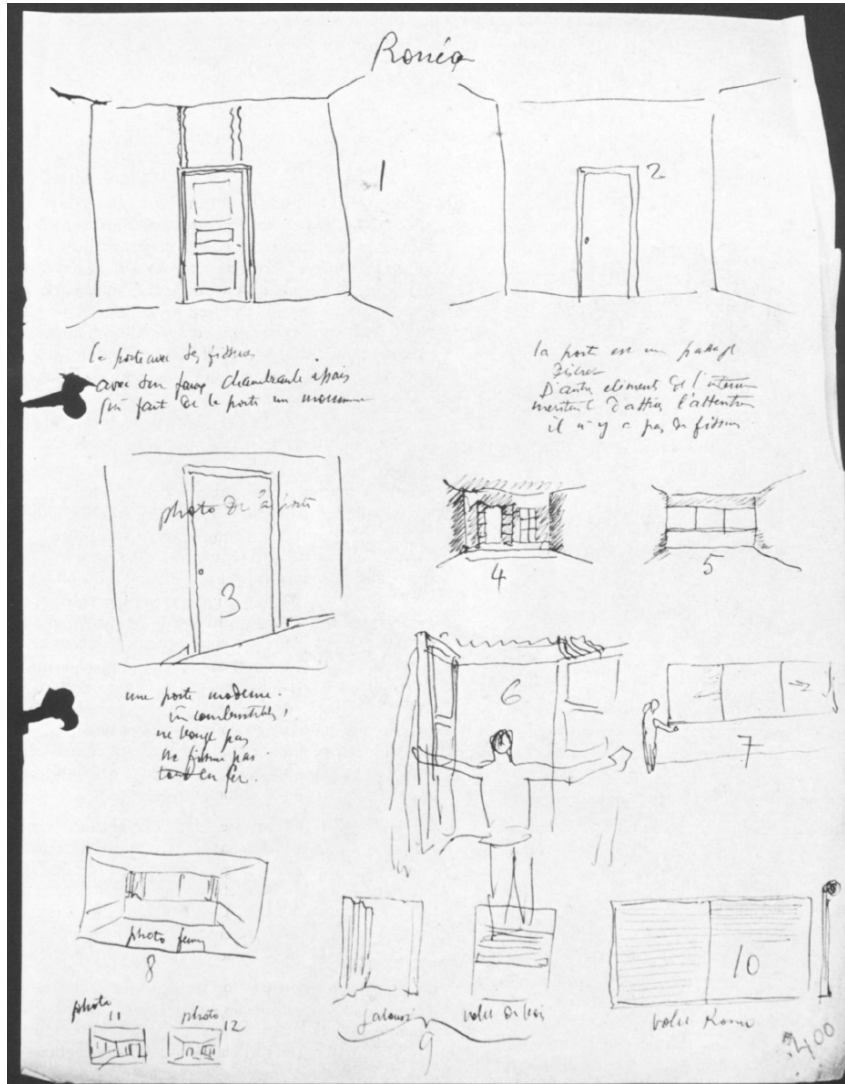 Ronéo
1
2
la porte avec ses fissures
avec son faux chambranle épais
qui fait de la porte un monument
la porte est un passage
D'autres éléments de l'interieur
meritent d'attirer l'attention
il n'y a pas de fissures
photo de la porte
3
4
5
une porte moderne.
incombustible!
ne bouge pas
ne fissure pas.
tout en fer.
6
7
photo
8
jalousie
volet de bois
9
10
volet Roneo
photo
11
photo
12
400